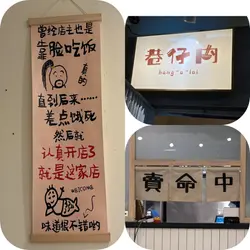 曾经店主也是
靠脸吃饭
真的
直到后来......
差点饿死
然后就
认真开店了
就是这家店
WELCOME
味道很不错哟
巷仔肉
hang-a-lai
賣命中